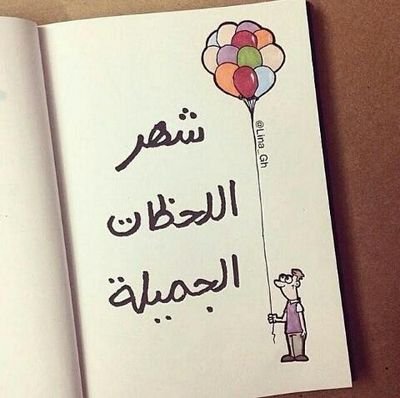 شهر
اللحظات
الجميلة
@Lina_Gh